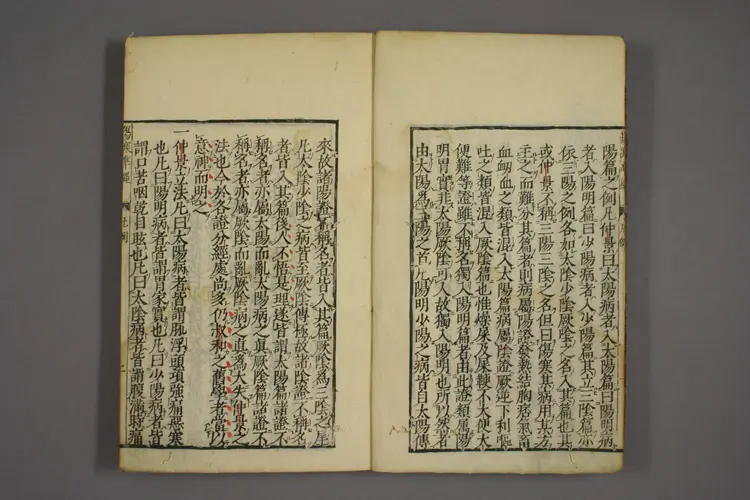 陽篇之例凡仲景曰太陽病者入太陽篇曰陽明病
者入陽明篇曰少陽病者入少陽篇其立三陰篇亦
依三陽之例各如太陰少陰厥陰之名入其篇也其
或仲景不稱三陽三陰之名但曰傷寒某病用某方
主之而難分其篇者則病屬陽證發熱結胸痞氣蓄
血衂血之類皆混入太陽篇病屬陰證厥逆下利嘔
吐之類皆混入厥陰篇也惟燥屎及屎鞕不大便大
便難等證雖不稱名獨入陽明篇者由此證類屬陽
明胃實非太陽厥陰可入故獨入陽明也所以然者
由太陽爲三陽之首凡陽明少陽之病皆自太陽傳
來故諸陽證不稱名者皆入其篇厥陰爲三陰之尾
凡太陰少陰之病皆至厥陰傳極故諸陰證不稱名
者皆入其篇後人不悟是理遂皆謂太陽篇諸證不
稱名者亦屬太陽而亂太陽病之眞厥陰篇諸證不
稱名者亦屬厥陰而亂厥陰病之眞爲大失仲景之
法也今於各證分經處尚多仍淑和之舊學者當以
意融而明之
一仲景之法凡曰太陽病者皆謂脉浮頭項強痛惡寒
也凡曰陽明病者皆謂胃家實也凡曰少陽病者皆
謂口苦咽乾目眩也凡曰太陰病者皆謂腹滿時痛